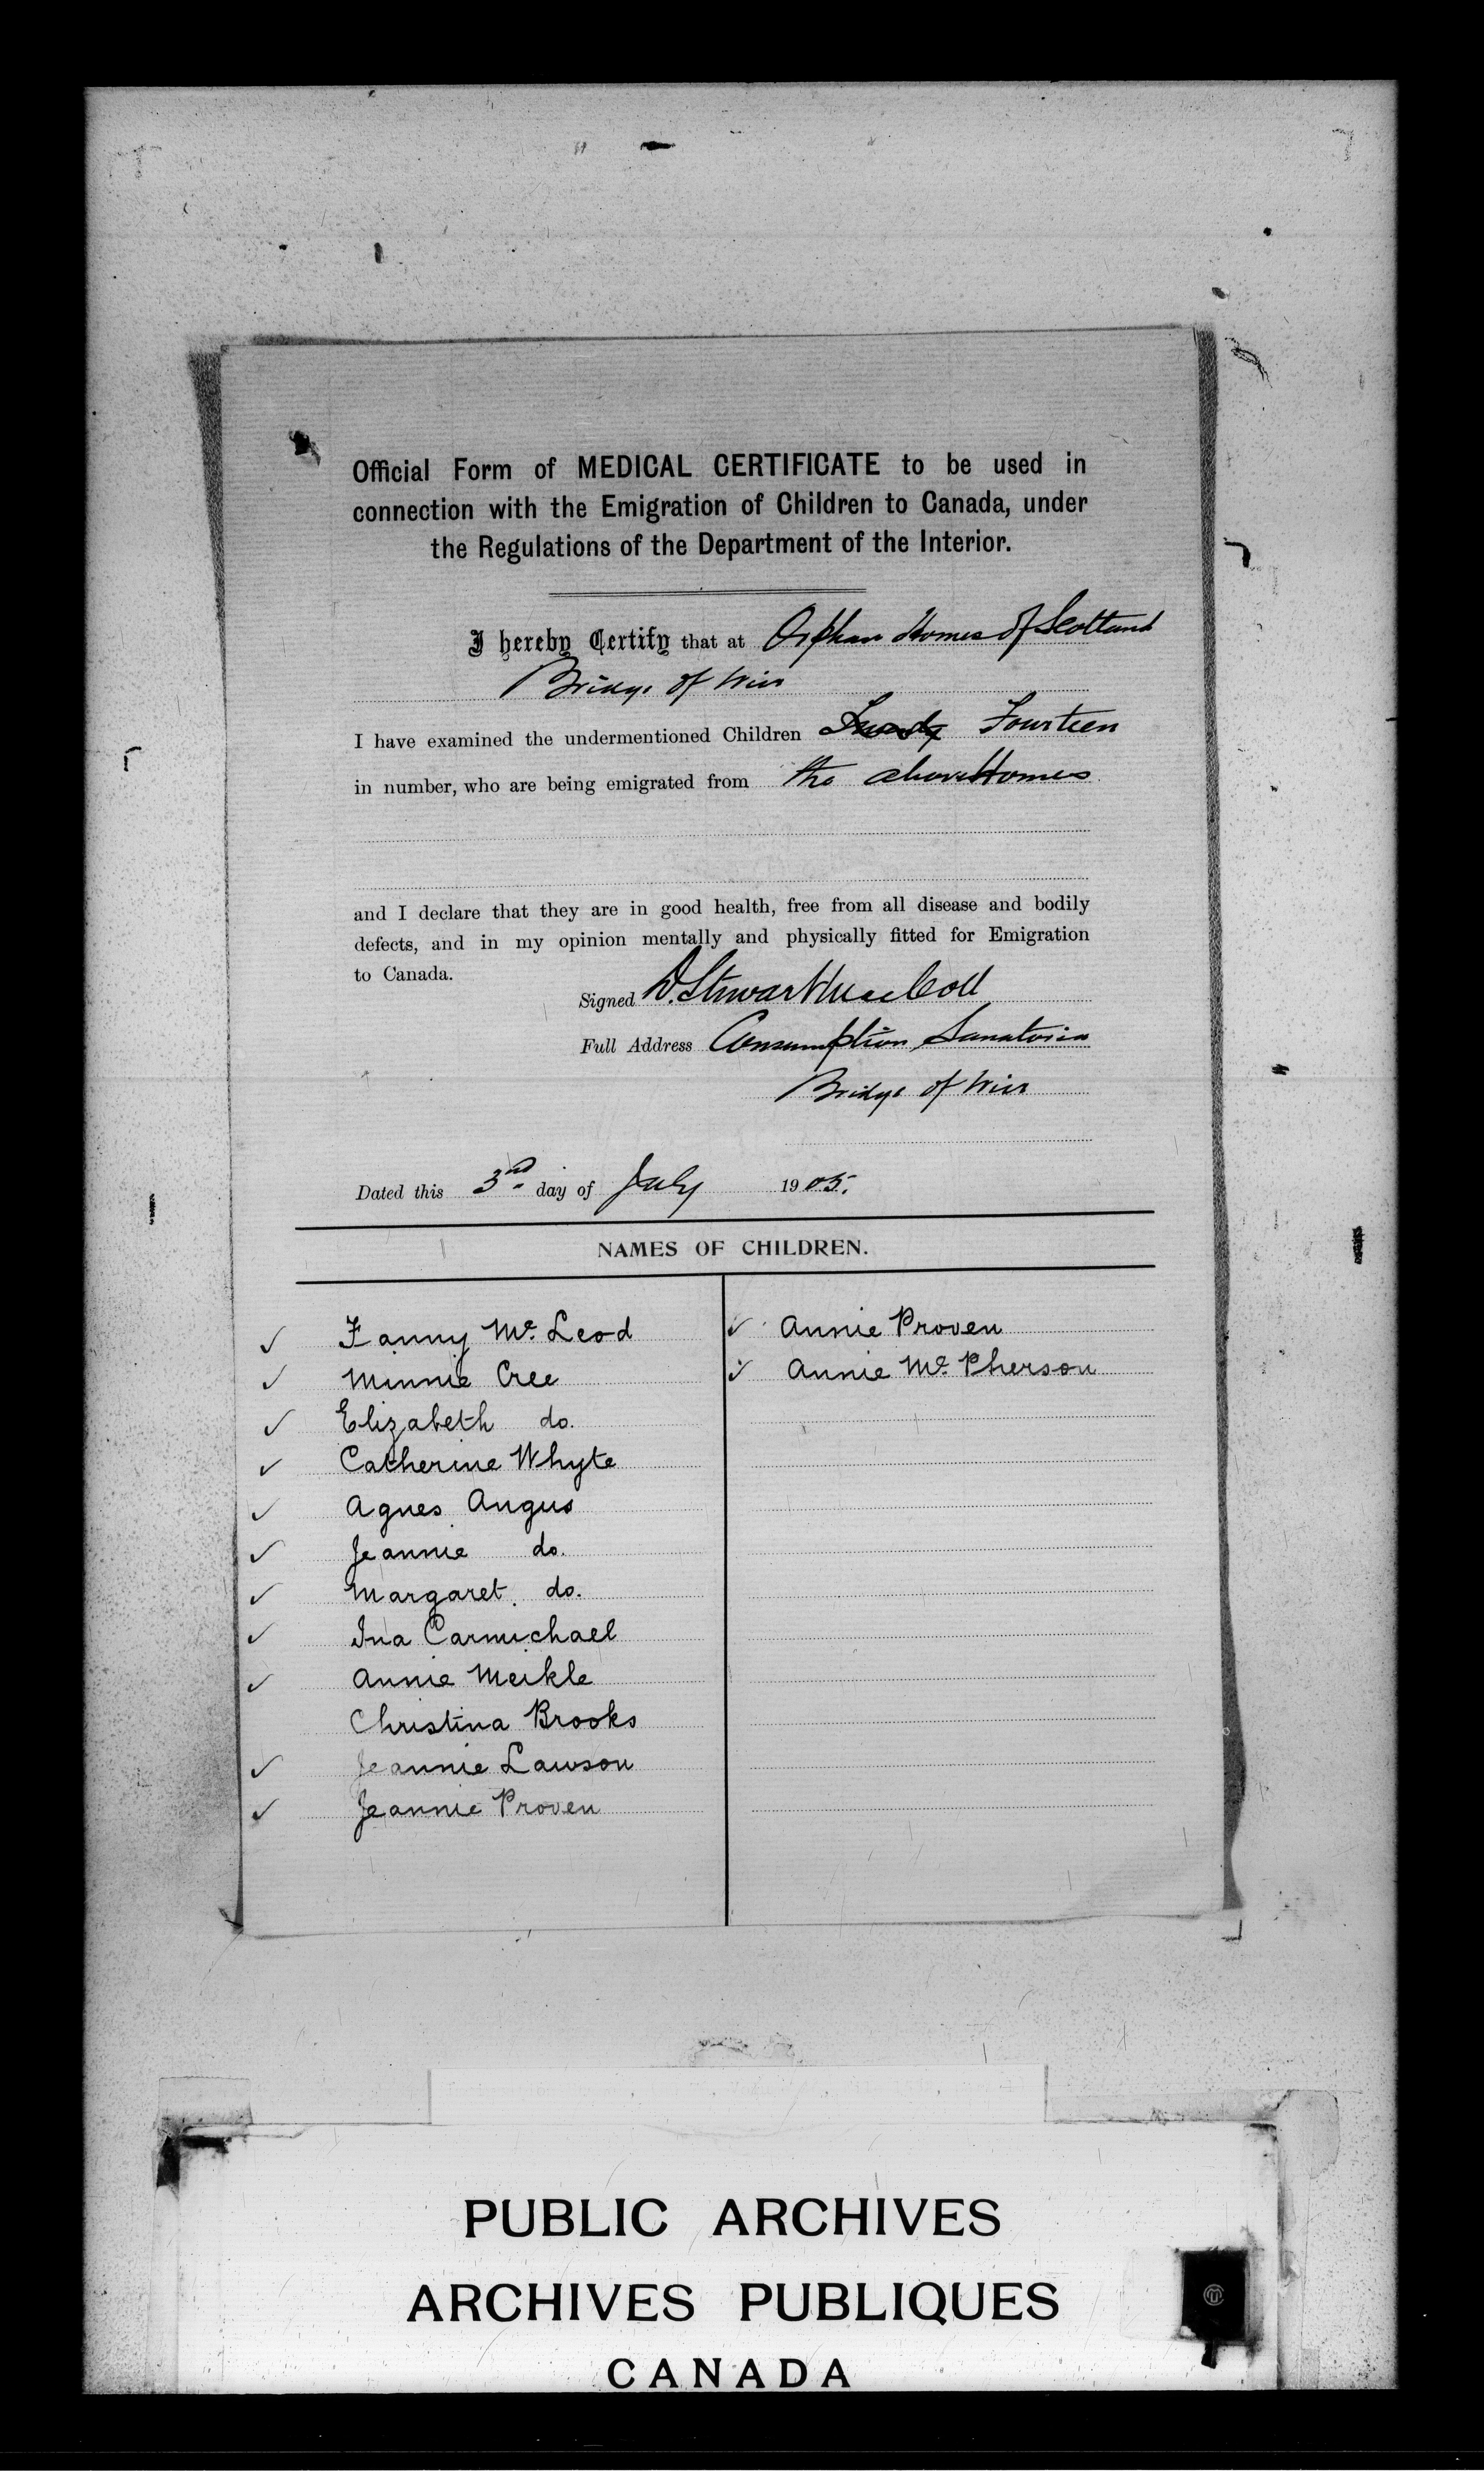 Official Form of MEDICAL CERTIFICATE to be used in
connection with the Emigration of Children to Canada, under
the Regulations of the Department of the Interior.
I hereby Certify that at Orphan Homes of Scotland
Bridge of Weir
I have examined the undermentioned Children Fourteen
in number, who are being emigrated from the above Homes
and I declare that they are in good health, free from all disease and bodily
defects, and in my opinion mentally and physically fitted for Emigration
to Canada.
Signed D. Stewart MacColl
Full Address Consumption Sanatoria
Bridge of Weir
Dated this 3rd day of July 1905.
NAMES OF CHILDREN.
✓ Fanny Mc. Leod
✓ Minnie Cree
✓ Elizabeth do.
✓ Catherine Whyte
✓ Agnes Angus
✓ Jeannie do.
✓ Margaret do.
✓ Ina Carmichael
✓ Annie Meikle
Christina Brooks
✓ Jeannie Lawson
✓ Jeannie Proven
✓ Annie Proven
✓ Annie Mc. Pherson
PUBLIC ARCHIVES
ARCHIVES PUBLIQUES
CANADA